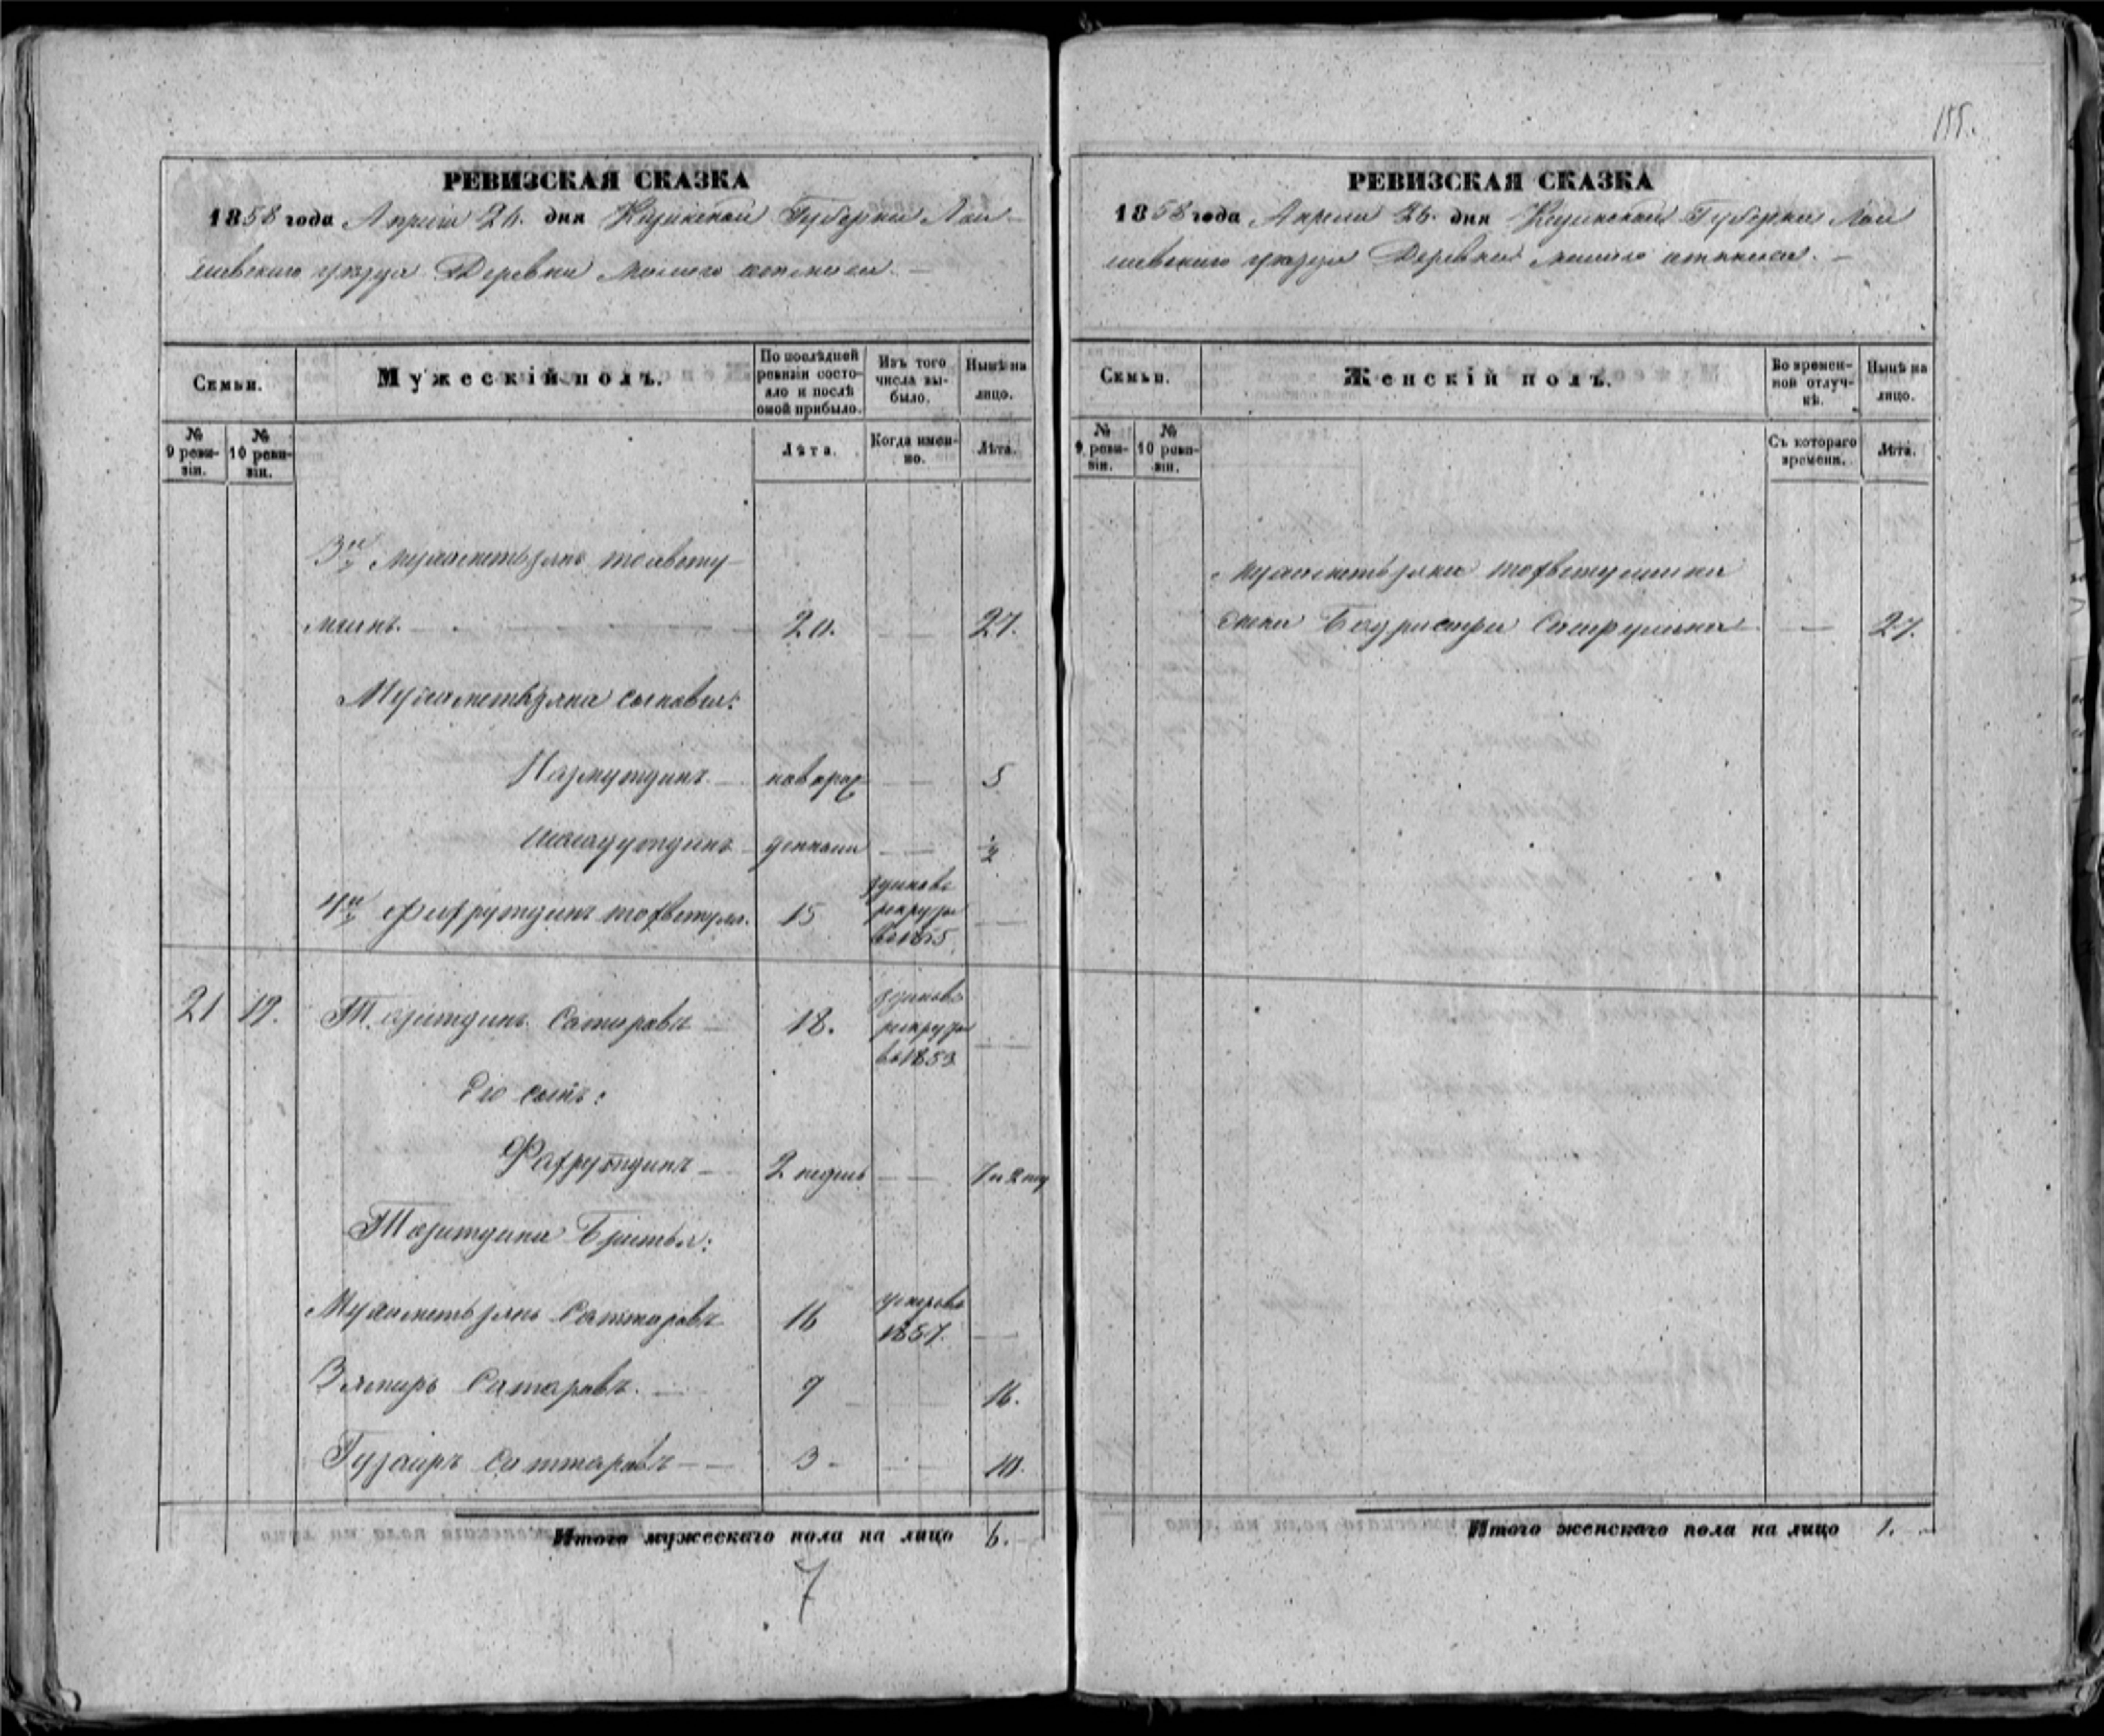 155.
РЕВИЗСКАЯ СКАЗКА
1858 года Апреля 26. дня Казанской Губернии Лаи-
шевскаго уезда Деревни малаго
Семьи.
Мужескій полъ.
По послѣдней ревизіи состо-
яло и послѣ
оной прибыло.
Изъ того
числа вы-
было.
Нынѣ на
лицо.
№
9 реви-
зіи.
№
10 реви-
зіи.
Лѣта.
Когда имен-
но.
Лѣта.
3й Мухаметьзянъ
20. — 27.
Мухаметьзяна сыновья:
Назмутдинъ — новорож — 5
денныи — ½
4й Фахрутдинъ 15 зданъ въ
рекруты
въ 1855. —
21 19. Тазитдинъ Сатаровъ — 18. зданъ въ
рекруты
въ 1853 —
Его сынъ:
Фахрутдинъ — 2 недель — 7 и 2 нед
Тазитдина Братья:
Мухаметьзянъ Саттаровъ 16 умеръ въ
1857. —
Сатаровъ. — 9 — 16.
Гузаиръ Саттаровъ — — 3 — 10.
Итого мужескаго пола на лицо 6.
7
РЕВИЗСКАЯ СКАЗКА
1858 года Апреля 26. дня Казанской Губернии Лаи
шевскаго уезда Деревни малаго
Семьи.
Женскій полъ.
Во времен-
ной отлуч-
кѣ.
Нынѣ на
лицо.
№
9 реви-
зіи.
№
10 реви-
зіи.
Съ котораго
времени.
Лѣта.
Мухаметьзяна
жена — 27.
Итого женскаго пола на лицо 1.